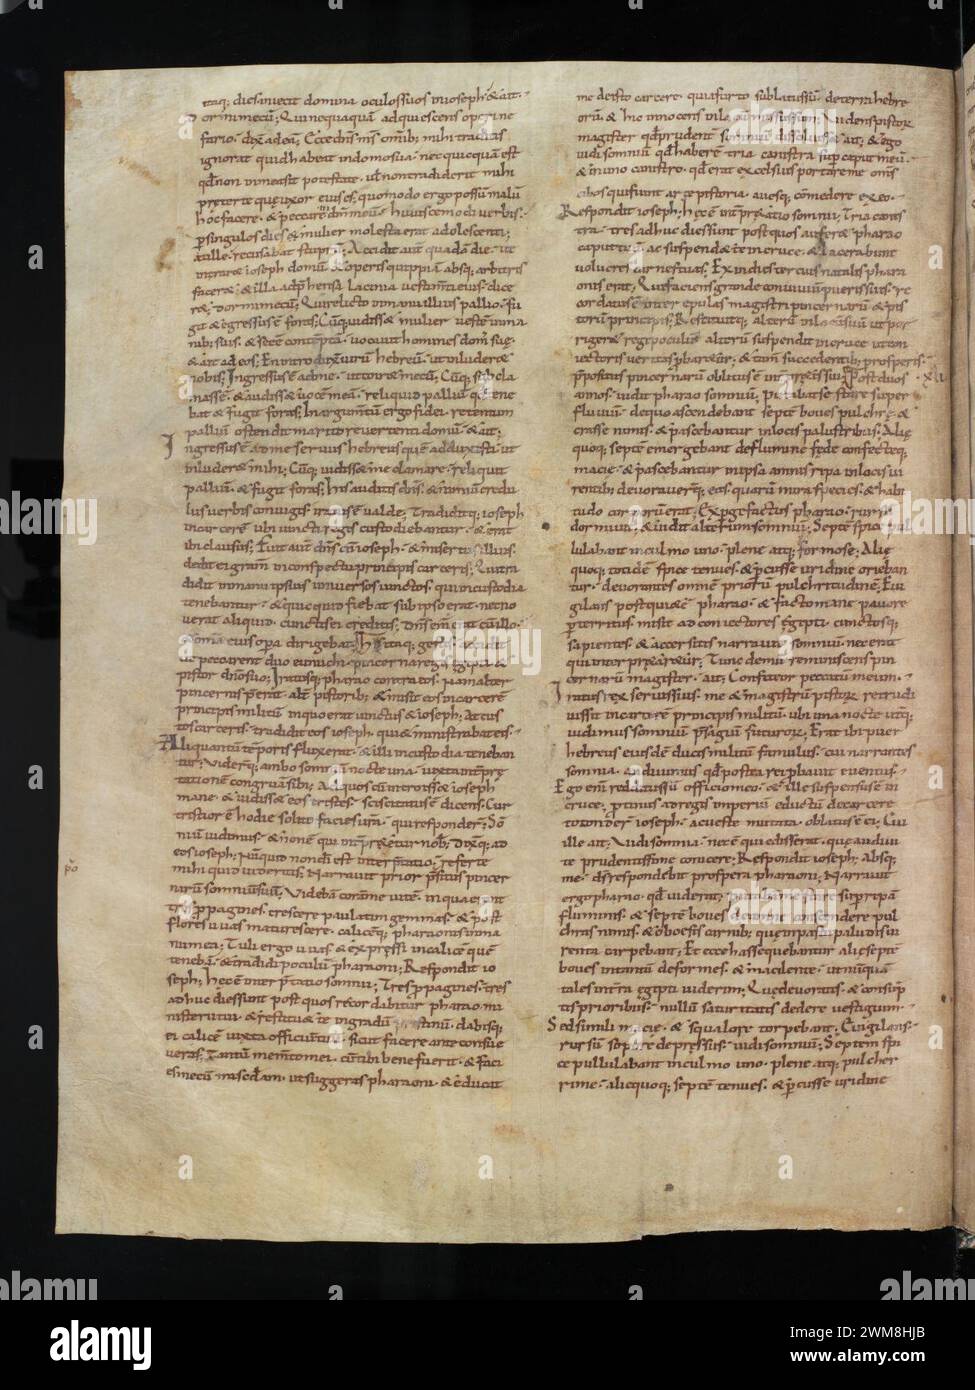 itaq; dies iniecit domina oculos suos in ioseph & ait.
Dormi mecū; Qui nequaquā adquiescens operi ne
fario. dix ad eā; Ecce dn̄s m̄s omib; mihi traditis
ignorat quid habeat in domo sua. nec quicquā est
qđ non in mea sit potestate. ut non tradiderit mihi
preter te quę uxor eius es; quomodo ergo possū malū
hoc facere. & peccare in dn̄m meū; Huiuscemodi verbis.
p singulos dies & mulier molesta erat adolescenti;
& ille recusabat stuprū; Accidit aut quadā die. ut
intraret ioseph domū & operis quippiā absq; arbitris
faceret; & illa adprehensa lacinia vestimti eius. dice
ret; dormi mecū; Qui relicto in manu illius pallio. fu
git & egressus ē foras; Cūq; vidiss& mulier vestē in ma
nib; suis. & se ēē contemptā. vocavit homines domˢ suę.
& ait ad eos; En introduxit virū hebreū. ut illuder&
nobis; Ingressus ē ad me. ut coiret mecū; Cūq; ego succla
mass&. & audiss& vocē meā. reliquid palliū qđ tene
bat & fugit foras; In argumtū ergo fidei. retentum
palliū ostendit marito revertenti domū. & ait.
Ingressus ē ad me servus hebreus quē adduxisti. ut
illuder& mihi; Cūq; vidiss& me clamare. reliquit
palliū. & fugit foras; His auditis dn̄s. & nimiū credu
lus verbis coniugis. iratus ē valde; Tradiditq; ioseph
in carcerē ubi vincti regis custodiebantur. & erat
ibi clausus; Fuit aut dn̄s cū ioseph. & misertus illius.
dedit ei gratiam in conspectu principis carceris; Qui tra
didit in manu ipsius universos vinctos. qui in custodia
tenebantur. & quicquid fiebat sub ipso erat. nec no
verat aliquid. cunctis ei creditis; Dn̄s eni erat cū illo.
& omia eius opa dirigebat; His itaq; gestis. accidit
ut peccarent duo eunuchi. pincerna regis egipti &
pistor dn̄o suo; Iratusq; pharao contra eos. nam alter
pincernis pˢerat. alt̄ pistorib; & misit eos in carcerē
principis militū. in quo erat vinctus & ioseph; At cus
tos carceris. tradidit eos ioseph. qui & ministrabat eis.
Aliquantū tēporis fluxerat. & illi in custodia teneban
tur; Viderq; ambo somniū nocte una. iuxta intprę
tationē congruā sibi; Ad quos cū introiss& ioseph
mane. & vidiss& eos tristes. sciscitatus ē dicens; Cur
tristior ē hodie solito facies vr̄a. qui responder; Sō
niū vidimus. & non ē qui intpretetur nob̄; Dixq; ad
eos ioseph; Nūquid non dī est interptatio. referte
mihi quid videritis; Narravit prior pˢpositus pincer
narū somniū suū; Videbā coram me vitē. in qua erant
tres ppagines. crescere paulatim gemmas. & post
flores uvas maturescere. calicēq; pharaonis in ma
nu mea; Tuli ergo uvas & expressi in calicē quē
tenebā. & tradidi poculū pharaoni; Respondit io
seph; hec ē interptatio somnii; Tres ppagines. tres
adhuc dies sunt post quos recordabitur pharao mi
nisterii tui. & restitu& te in gradū pristinū. dabisq;
ei calicē iuxta officiū tuū. sicut facere ante consue
veras; Tantū memto mei. cū tibi bene fuerit. & faci
es mecū misedam. ut suggeras pharaoni. & educat
p̄o
me de isto carcere. quia furto sublatus sū. de terra hebre
orū. & hic innocens in lacū missus sū; Videns pistor
magister qđ prudent somniū dissolviss& ait; & ego
vidi somniū. qđ haberē tria canistra sup caput meū.
& in uno canistro. qđ erat excelsius portare me omis
cibos qui fiunt arte pistoria. avesq; comedere ex eo.
Respondit ioseph; hec ē intpretatio somnii; Tria canis
tra. tres adhuc dies sunt post quos aufer& pharao
caput tuū. ac suspend& te in cruce. & lacerabunt
volucres carnes tuas. Exin dies tercius natalis phara
onis erat; Qui faciens grande conviviū pueris suis. re
cordatus ē inter epulas magistri pincernarū & pis
torū principis; Restituitq; alterū in locū suū ut por
riger& regi poculū. alterū suspendit in cruce ut con
iectoris veritas pbaretur; & tam̄ succedentib; prosperis.
pˢpositus pincernarū oblitus ē intpretis sui; Post duos .xli.
annos. vidit pharao somniū; Putabat se stare super
fluviū. de quo ascendebant septē boves pulchrę &
crasse nimis. & pascebantur in locis palustribus; Alię
quoq; septē emergebant de flumine fede confecteq;
macie. & pascebantur in ipsa amnis ripa in locis vi
rentib; devoraverq; eas. quarū mira species & habi
tudo corporū erat; Expgefactus pharao. rursū
dormivit. & vidit alterum somniū; Septē spicę pul
lulabant in culmo uno. plene atq; formose; Alię
quoq; totidē spice tenues. & pcusse uridine orieban
tur. devorantes omnē priorū pulchritudinē; Evi
gilans post quietē pharao. & facto mane pavore
pterritus. misit ad coniectores egipti. cunctosq;
sapientes. & accersitis narravit somniū. nec erat
qui intpretaretur; Tunc demū reminiscens pin
cernarū magister. ait; Confiteor peccatū meum.
Iratus rex servis suis. me & magistrū pistorū retrudi
iussit in carcerē principis militū. ubi una nocte utq;
vidimus somniū. pˢsagū futurorū; Erat ibi puer
hebreus eiusdē ducis militū famulus. cui narrantes
somnia. audivimus qđ postea rei pbavit eventus.
Ego eni redditus sū officio meo. & ille suspensus ē in
cruce; protinus ad regis imperiū eductū de carcere
totonder ioseph. ac veste mutata. oblatus ē ei; Cui
ille ait; Vidi somnia. nec ē qui edisserat. quę audivi
te prudentissime conicere; Respondit ioseph; Absq;
me. ds respondebit prospera pharaoni; Narravit
ergo pharao. qđ viderat; Putabā me stare sup ripā
fluminis. & septē boves de amne conscendere pul
chras nimis. & obesis carnib; que in pastu paludis vi
renta carpebant; Et ecce has sequebantur alię septē
boves in tantū deformes. & macilente. ut nūquā
tales in terra egipti viderim; Quę devoratis. & consūp
tis prioribus. nullū saturitatis dedere vestigium.
Sed simili macie. & squalore torpebant; Evigilans.
rursū sopore depressus. vidi somniū; Septem spi
ce pullulabant in culmo uno. plene atq; pulcher
rime. alie quoq; septē tenues. & pcusse uridine
alamy
Image ID: 2WM8HJB
www.alamy.com